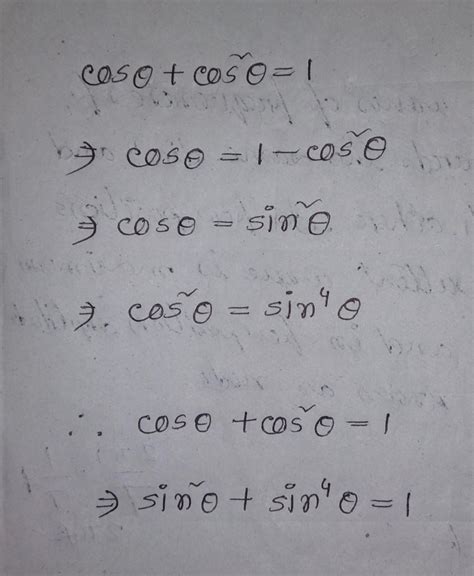 cosθ + cos²θ = 1
⇒ cosθ = 1 - cos²θ
⇒ cosθ = sin²θ
⇒ cos²θ = sin⁴θ
∴ cosθ + cos²θ = 1
⇒ sin²θ + sin⁴θ = 1